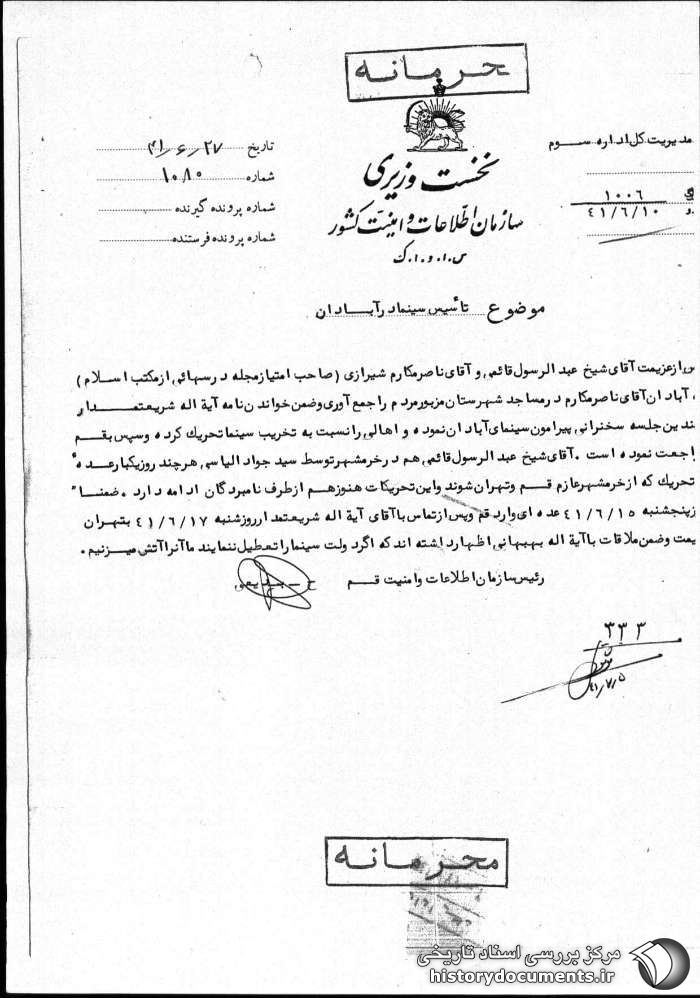 محرمانه
مدیریت کل اداره سوم
تاریخ ۴۱/۶/۲۷
نخست وزیری
شماره ۱۰۸۰
۱۰۰۶
۴۱/۶/۱۰
شماره پرونده گیرنده
سازمان اطلاعات و امنیت کشور
شماره پرونده فرستنده
س.ا.و.ا.ک
موضوع تأسیس سینما در آبادان
از عزیمت آقای شیخ عبدالرسول قائمی و آقای ناصر مکارم شیرازی (صاحب امتیاز مجله درسهائی از مکتب اسلام)
آبادان آقای ناصر مکارم در مساجد شهرستان مزبور مردم را جمع آوری وضمن خواندن نامه آیة اله شریعتمدار
ندین جلسه سخنرانی پیرامون سینمای آبادان نموده و اهالی را نسبت به تخریب سینما تحریک کرده وسپس بقم
اجعت نموده است. آقای شیخ عبدالرسول قائمی هم در خرمشهر توسط سید جواد الیاسی هر چند روز یکبار عده
تحریک که از خرمشهر عازم قم وتهران شوند واین تحریکات هنوز هم از طرف نامبردگان ادامه دارد. ضمنا"
زپنجشنبه ۴۱/۶/۱۵ عده ای وارد قم وپس از تماس با آقای آیة اله شریعتمدار روزشنبه ۴۱/۶/۱۷ بتهران
یمت وضمن ملاقات با آیة اله بهبهانی اظهار داشته اند که اگر دولت سینما را تعطیل ننمایند ما آنرا آتش میزنیم.
رئیس سازمان اطلاعات وامنیت قم
۳۳۳
۴۱/۷/۵
محرمانه
مرکز بررسی اسناد تاریخی
historydocuments.ir